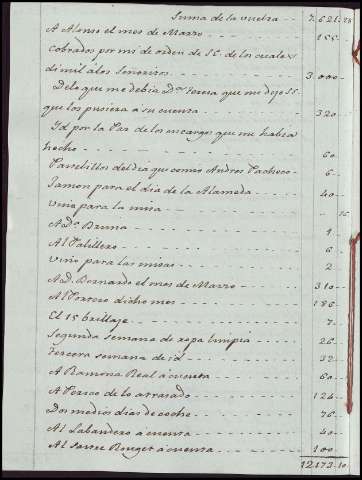 Suma de la vuelta - - 7.621..28
A Alonso el mes de Marzo - - 155..
Cobrados por mi de orden de SS. de los cuales
di mil á los Señoritos - - 3.000 -
De lo que me debia D.ª Teresa que me dijo SS.
que los pusiera a su cuenta - - 320.
Id por la de los encargos que me habia
hecho - - 60
Panecillos del dia que comio Andres Pacheco - 6.
Jamon para el dia de la Alameda - - 40
Vino para la misa - -
A D.ª Bruna - -
Al - - 6
Vino para las misas - - 2
A D. Bernardo el mes de Marzo - - 310
Al Portero dicho mes - - 186
El 15 - - 7.
Segunda semana de ropa limpia - - 26
Tercera semana de id - - 32
A Ramona Real á cuenta - - 60
A Perico de lo atrasado - - 124
Dos medios dias de coche - - 76
Al Labandero á cuenta - - 40
Al Sastre Rouget á cuenta - - 100
12.173..10